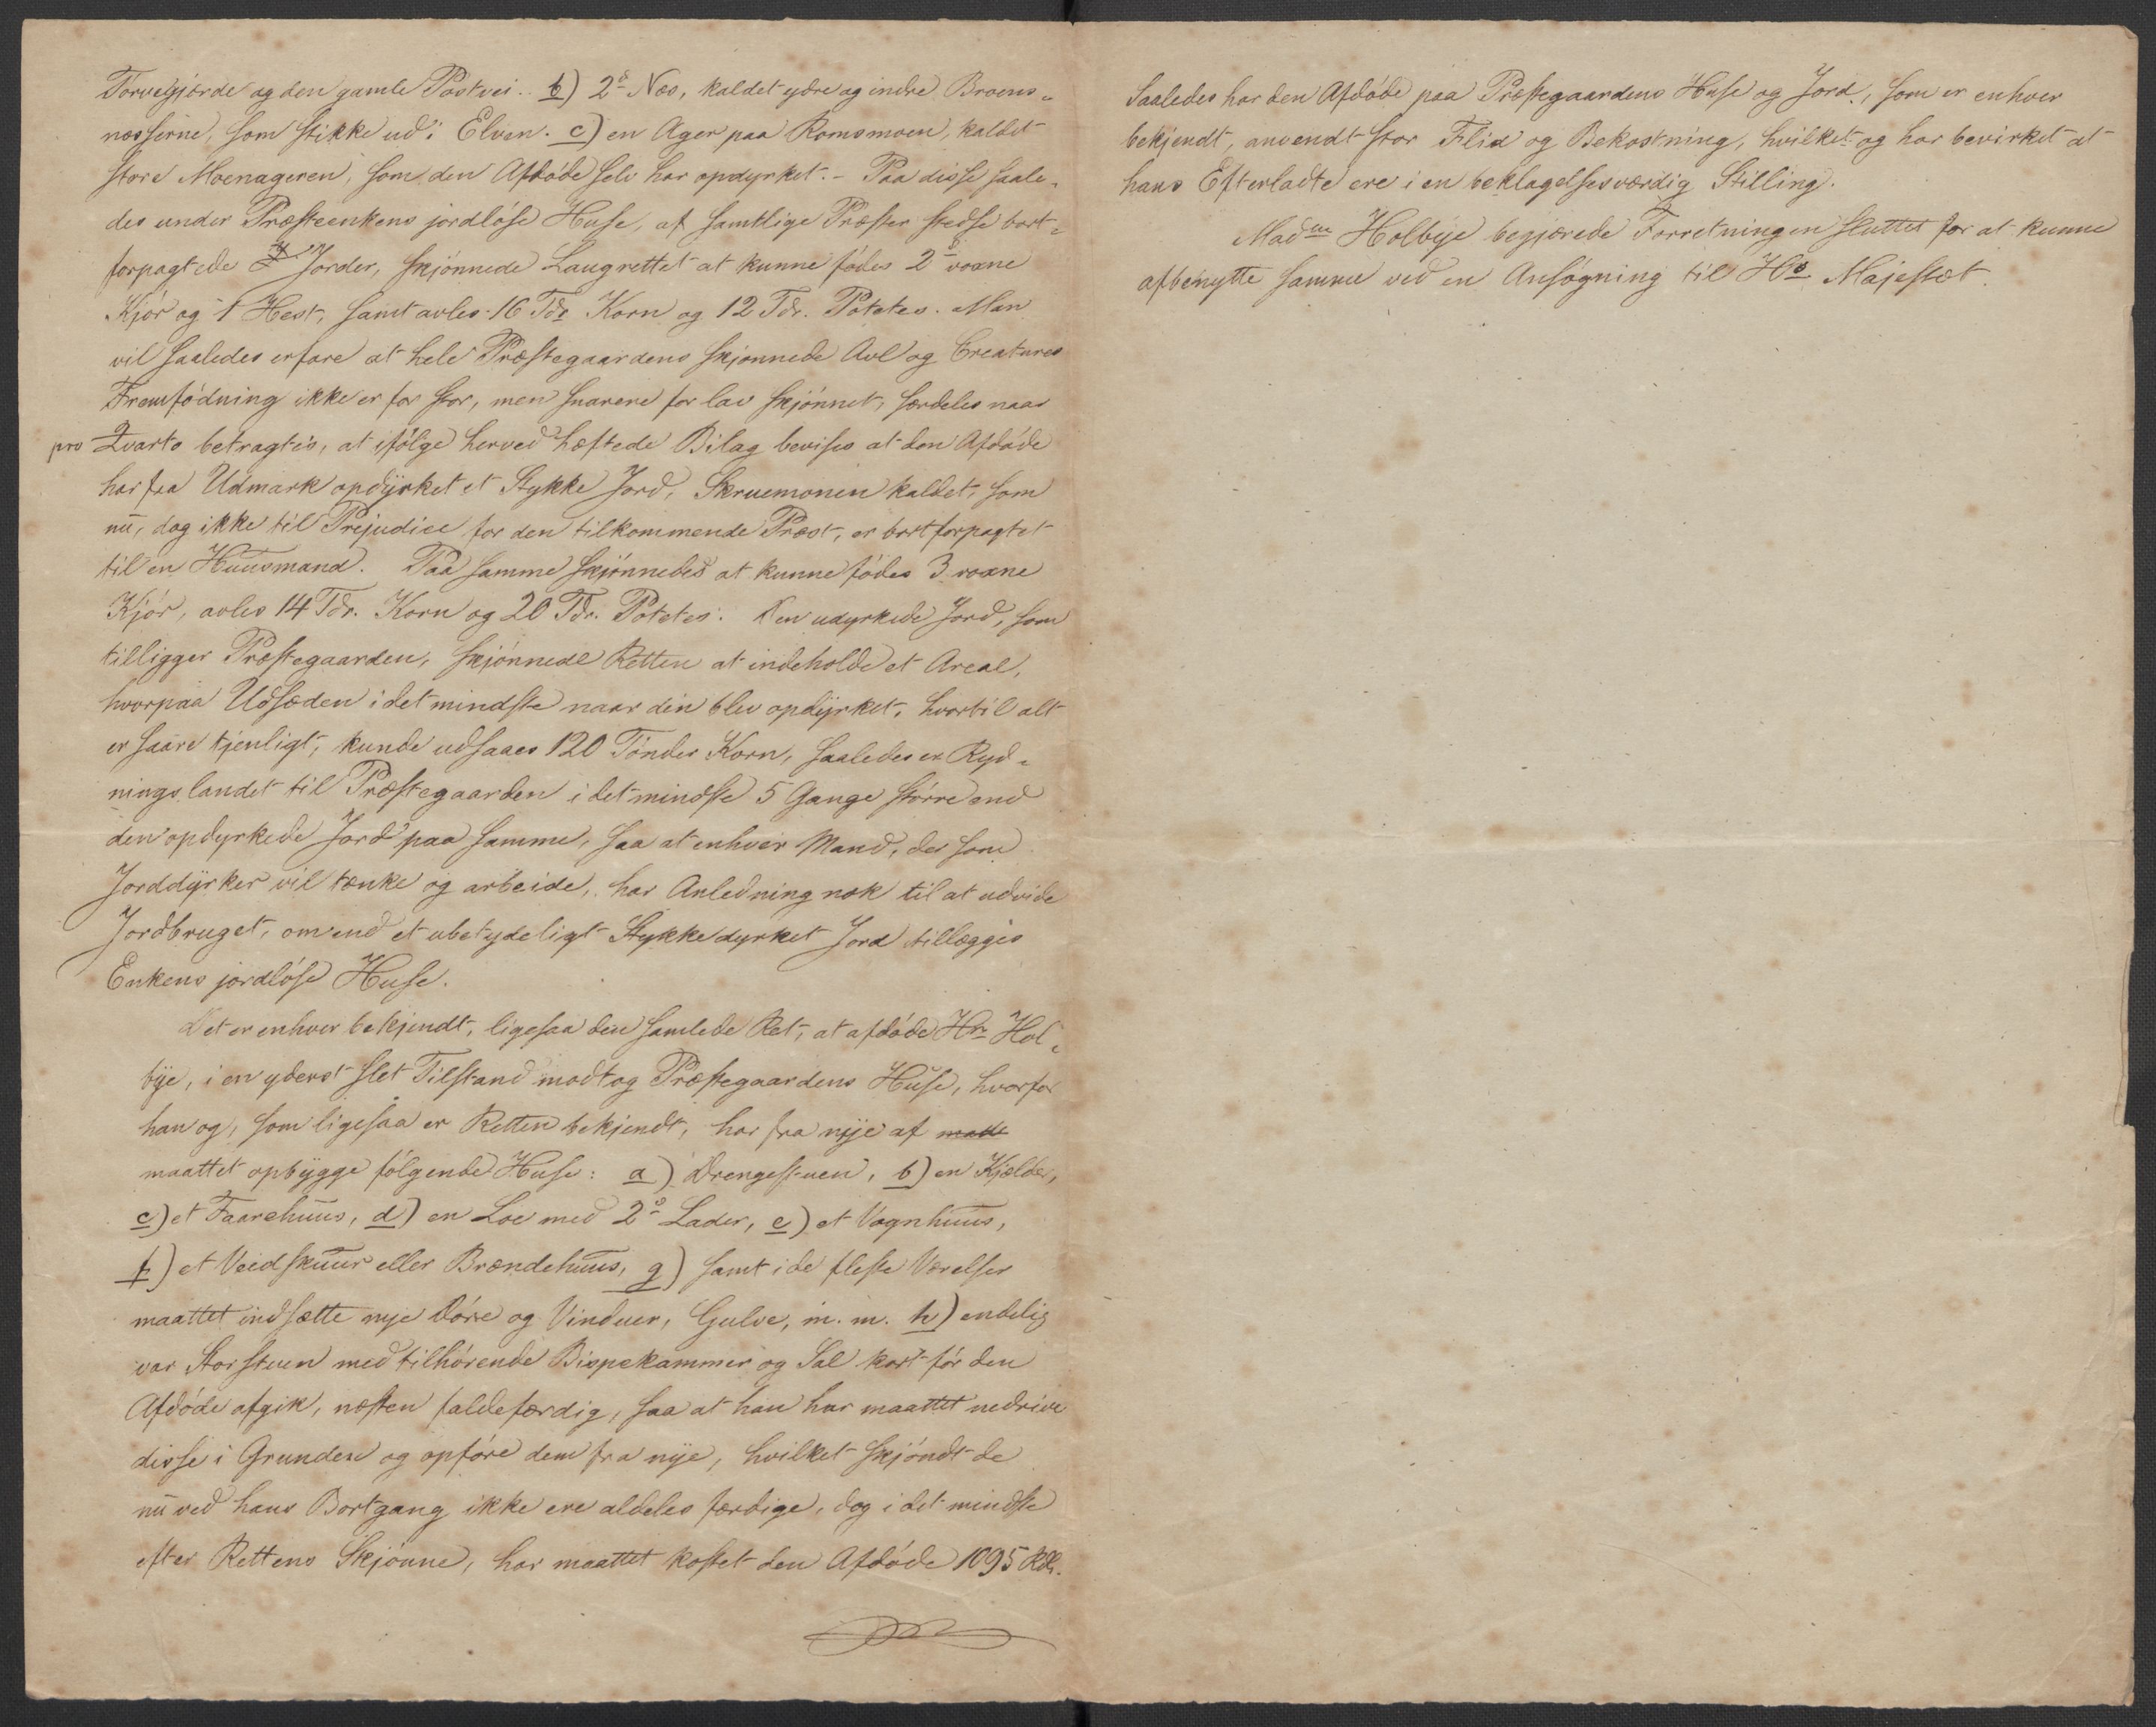 Torvegjærde og den gamle Postvei. b) 2de Næs, kaldet ydre og indre Broens-
næsserne, som stikke ud i Elven. c) en Ager paa Romsmoen, kaldet
store Moenageren, som den Afdøde selv har opdyrket. - Paa disse saale-
des under Præsteenkens jordløse Huse, af samtlige Præster stedse bort-
forpagtede Jorder, skjønnede Laugrettet at kunne fødes 2de voxne
Kjør og 1 Hest, samt avles 16 Tdr Korn og 12 Tdr. Potetes. Man
vil saaledes erfare at hele Præstegaardens skjønnede Avl og Creatures
Fremfødning ikke er for stor, men snarere for lav skjønnet, særdeles naar
pro Qvarto betragtes, at ifølge herved hæftede Bilag bevises at den Afdøde
har fra Udmark opdyrket et Stykke Jord, Skruemonen kaldet, som
nu, dog ikke til Prejudice for den tilkommende Præst, er bortforpagtet
til en Huusmand. Paa samme skjønnedes at kunne fødes 3 voxne
Kjør, avles 14 Tdr. Korn og 20 Tdr. Potetes. Den udyrkede Jord, som
tilligger Præstegaarden, skjønnede Retten at indeholde et Areal,
hvorpaa Udsæden i det mindste naar den blev opdyrket, hvortil alt
er saare tjenligt, kunde udsaaes 120 Tønder Korn, saaledes er Ryd-
ningslandet til Præstegaarden i det mindste 5 Gange større end
den opdyrkede Jord paa samme, saa at enhver Mand, der som
Jorddyrker vil tænke og arbeide, har Anledning nok til at udvide
Jordbruget, om end et ubetydeligt Stykke dyrket Jord tillægges
Enkens jordløse Huse.
Det er enhver bekjendt, ligesaa den samlede Ret, at afdøde Hr. Hol-
bye, i en yderst slet Tilstand modtog Præstegaardens Huse, hvorfor
han og, som ligesaa er Retten bekjendt, har fra nye af
maattet opbygge følgende Huse: a) Drengestuen, b) en Kjelder,
c) et Faarehuus, d) en Loe med 2de Lader, e) et Vognhuus,
f) et Veedskuur eller Brændehuus, g) samt i de fleste Værelser
maattet indsætte nye Dørre og Vinduer, Gulve, m. m. h) endelig
var Storstuen med tilhørende Bispekammer og Sal kort før den
Afdøde afgik, næsten faldefærdig, saa at han har maattet nedrive
disse i Grunden og opføre dem fra nye, hvilket skjøndt de
nu ved hans Bortgang ikke ere aldeles færdige, dog i det mindste
efter Rettens Skjønne, har maattet kostet den Afdøde 1095 Rdlr.
Saaledes har den Afdøde paa Præstegaardens Huse og Jord, som er enhver
bekjendt, anvendt stor Flid og Bekostning, hvilket og har bevirket at
hans Efterladte ere i en beklagelsesværdig Stilling.
Madme Holbye begjærede Forretningen sluttet for at kunne
afbenytte samme ved en Ansøgning til Hs Majestæt.